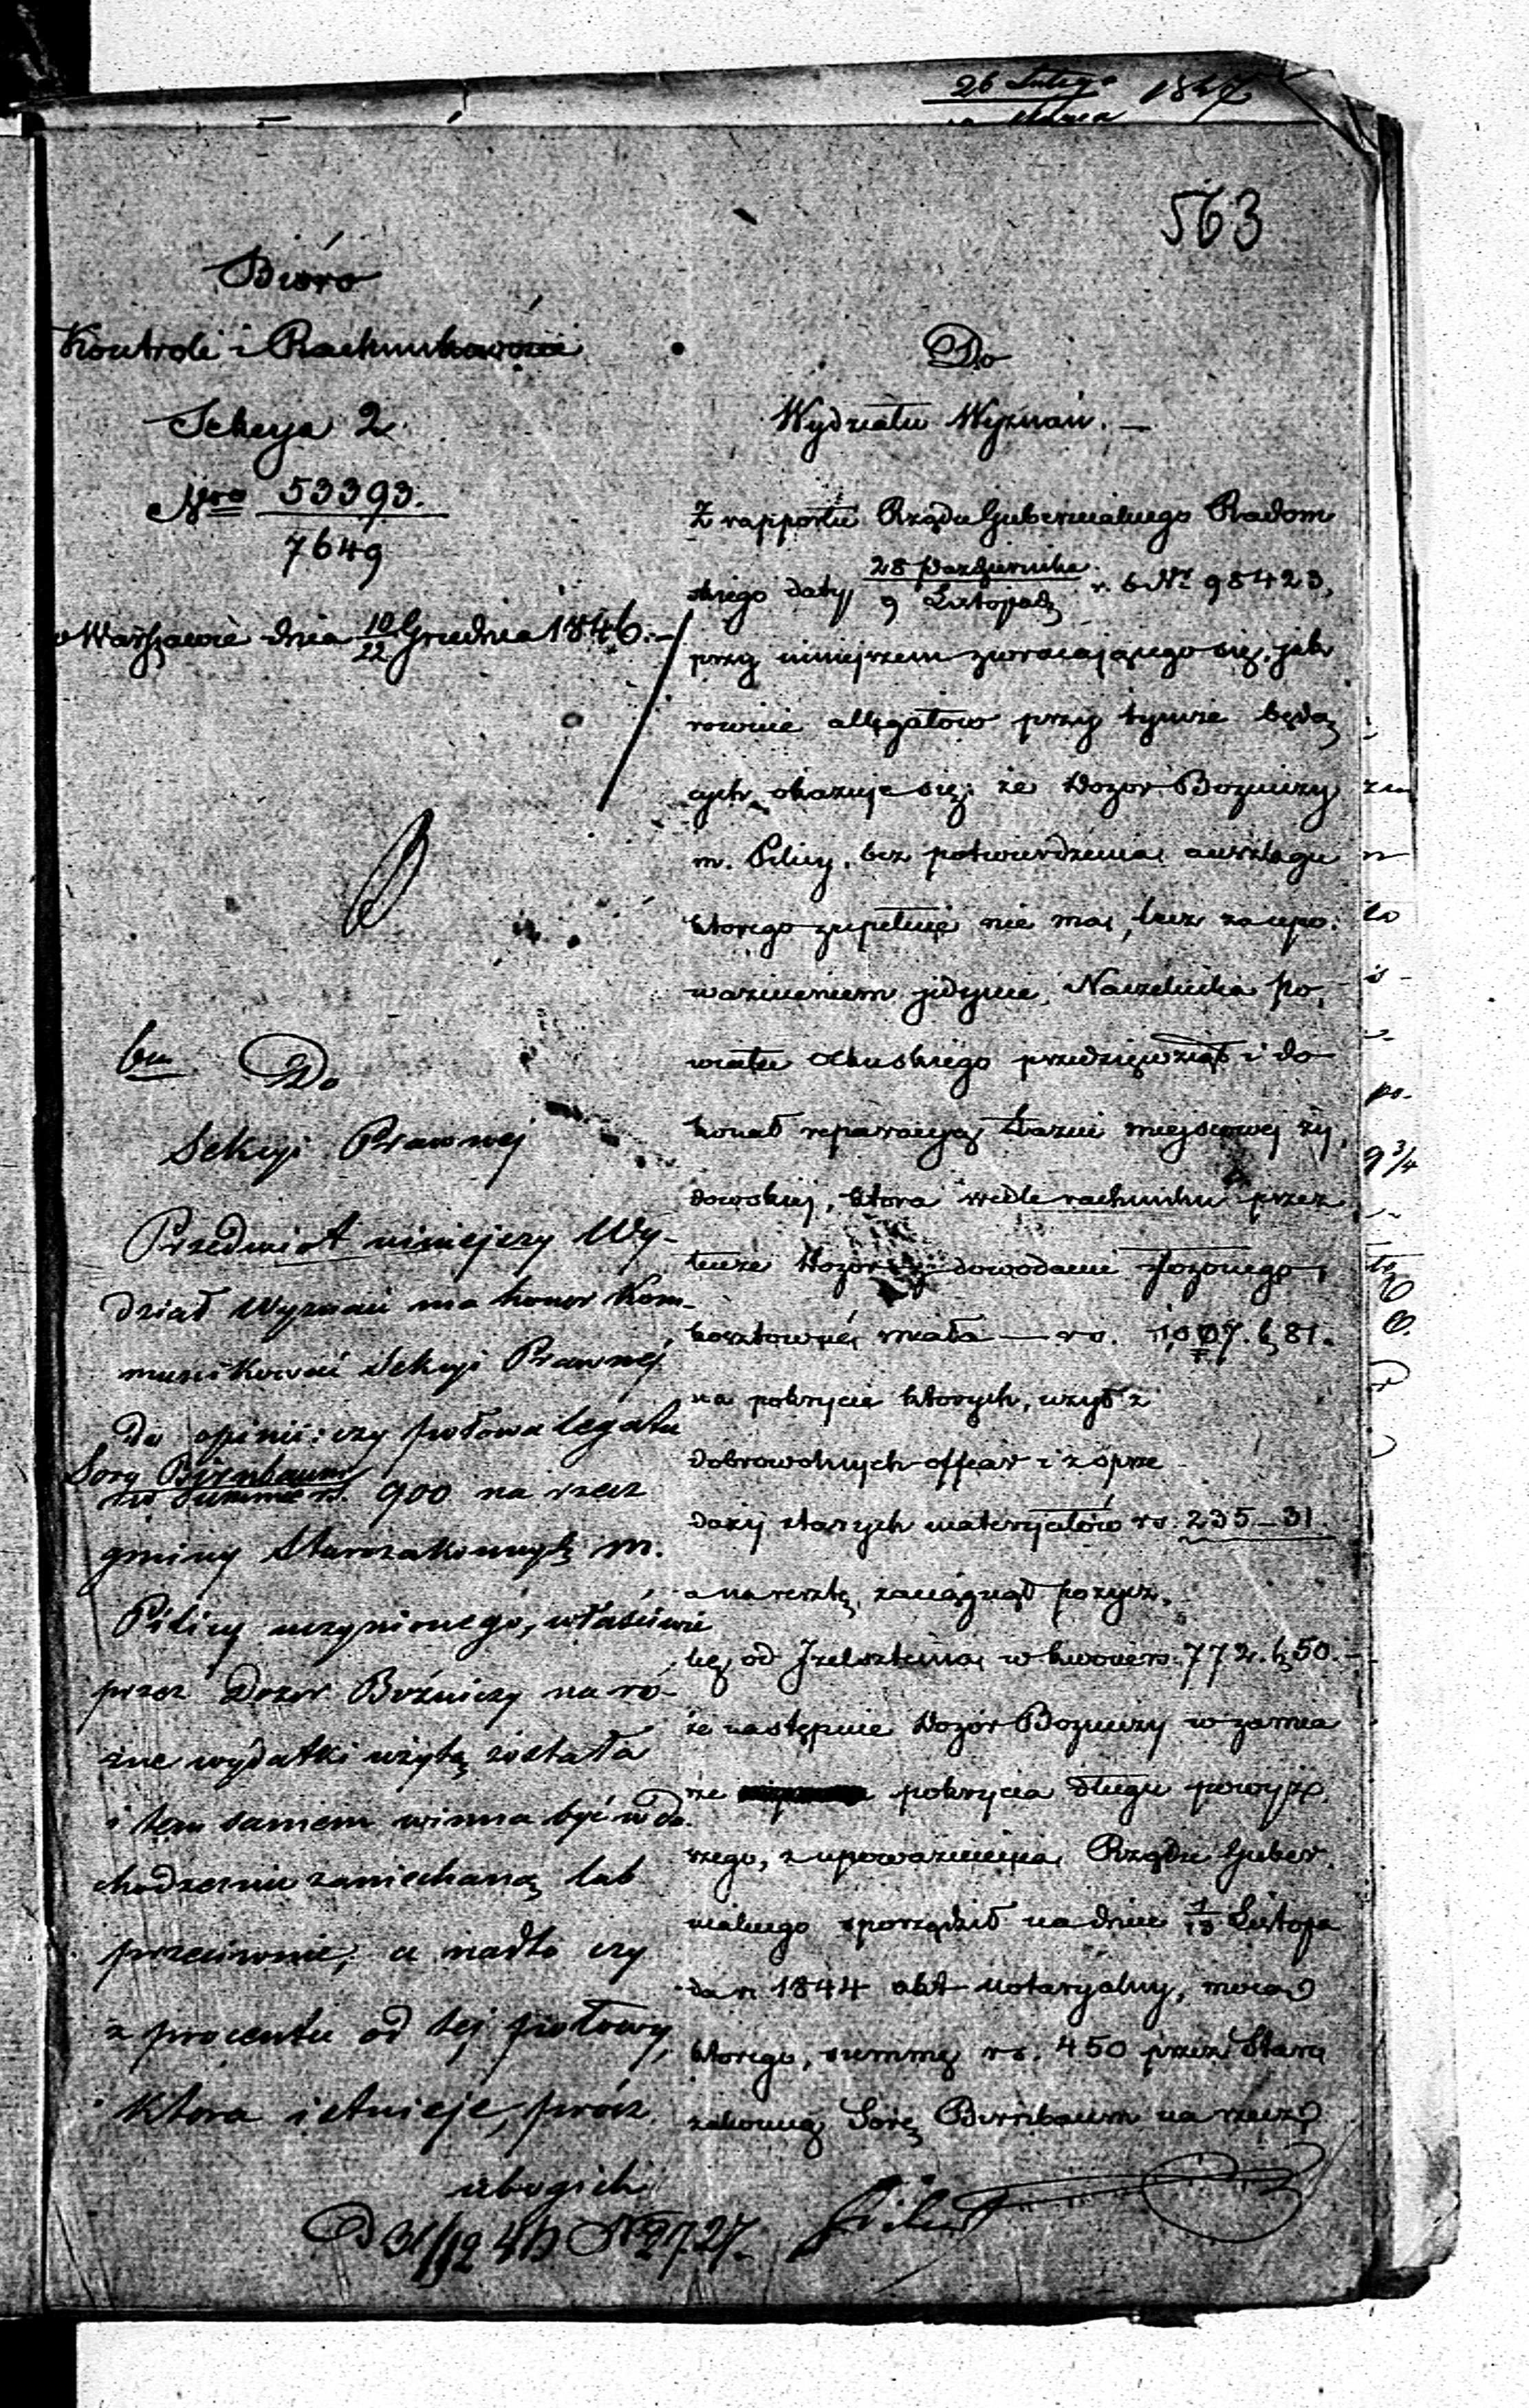 26 Lutego 1847
Marca
563
Bióro
Kontroli i Rachunkowości
Sekcya 2.
Nro 53393.
7649
w Warszawie dnia 10/22 Grudnia 1846.
Do
Wydziału Wyznań. —
Z rapportu Rządu Gubernialnego Radom
skiego daty 28 Października / 9 Listopada r. b. Nr 98423,
przy niniejszem zwracającego się, jak
rownie allegatow przy tymże będą
cych okazuje się: że Dozor Bozniczy
m. Pilicy, bez potwierdzenia anszlagu
ktorego zupełnie nie ma, lecz za upo
ważnieniem jedynie, Naczelnika Po
wiatu Olkuskiego przedsięwziął i do
konał reparacyą Łazni miejscowej ży
dowskiej, ktora wedle rachunku przez
tenże Dozor dowodami złożonego,
kosztować miała — rs. 1,007. k 81.
na pokrycie ktorych, użył z
dobrowolnych offiar i z sprze
daży starych materyałów rs. 235 – 31.
a na resztę, zaciągnął pożycz,
kę od Izelszteina w kwocie rs. 772. k 50. –
że następnie Dozór Bozniczy w zamia
rze pokrycia długu powyż
szego, z upoważnienia Rządu Guber
nialnego sporządził na dniu 1/13 Listopa
da r. 1844 akt notaryalny, mocą
ktorego, summę rs. 450 przez Staro
zakonną Sorę Birnbaum na rzecz
Do
Sekcyi Prawnej
Przedmiot niniejszy Wy-
dział Wyznań ma honor Kom-
munikować Sekcyi Prawnej
do opinii: czy połowa legatu
Sory Birnbaum
w summie rs. 900 na rzecz
gminy Starozakonnych m.
Pilicy uczynionego, właściwie
przez Dozor Bóżniczy na ró-
żne wydatki użytą została
i tem samem winna być w do
chodzeniu zaniechaną lub
przeciwnie, a nadto czy
z procentu od tej połowy,
która istnieje, prócz
ubogich